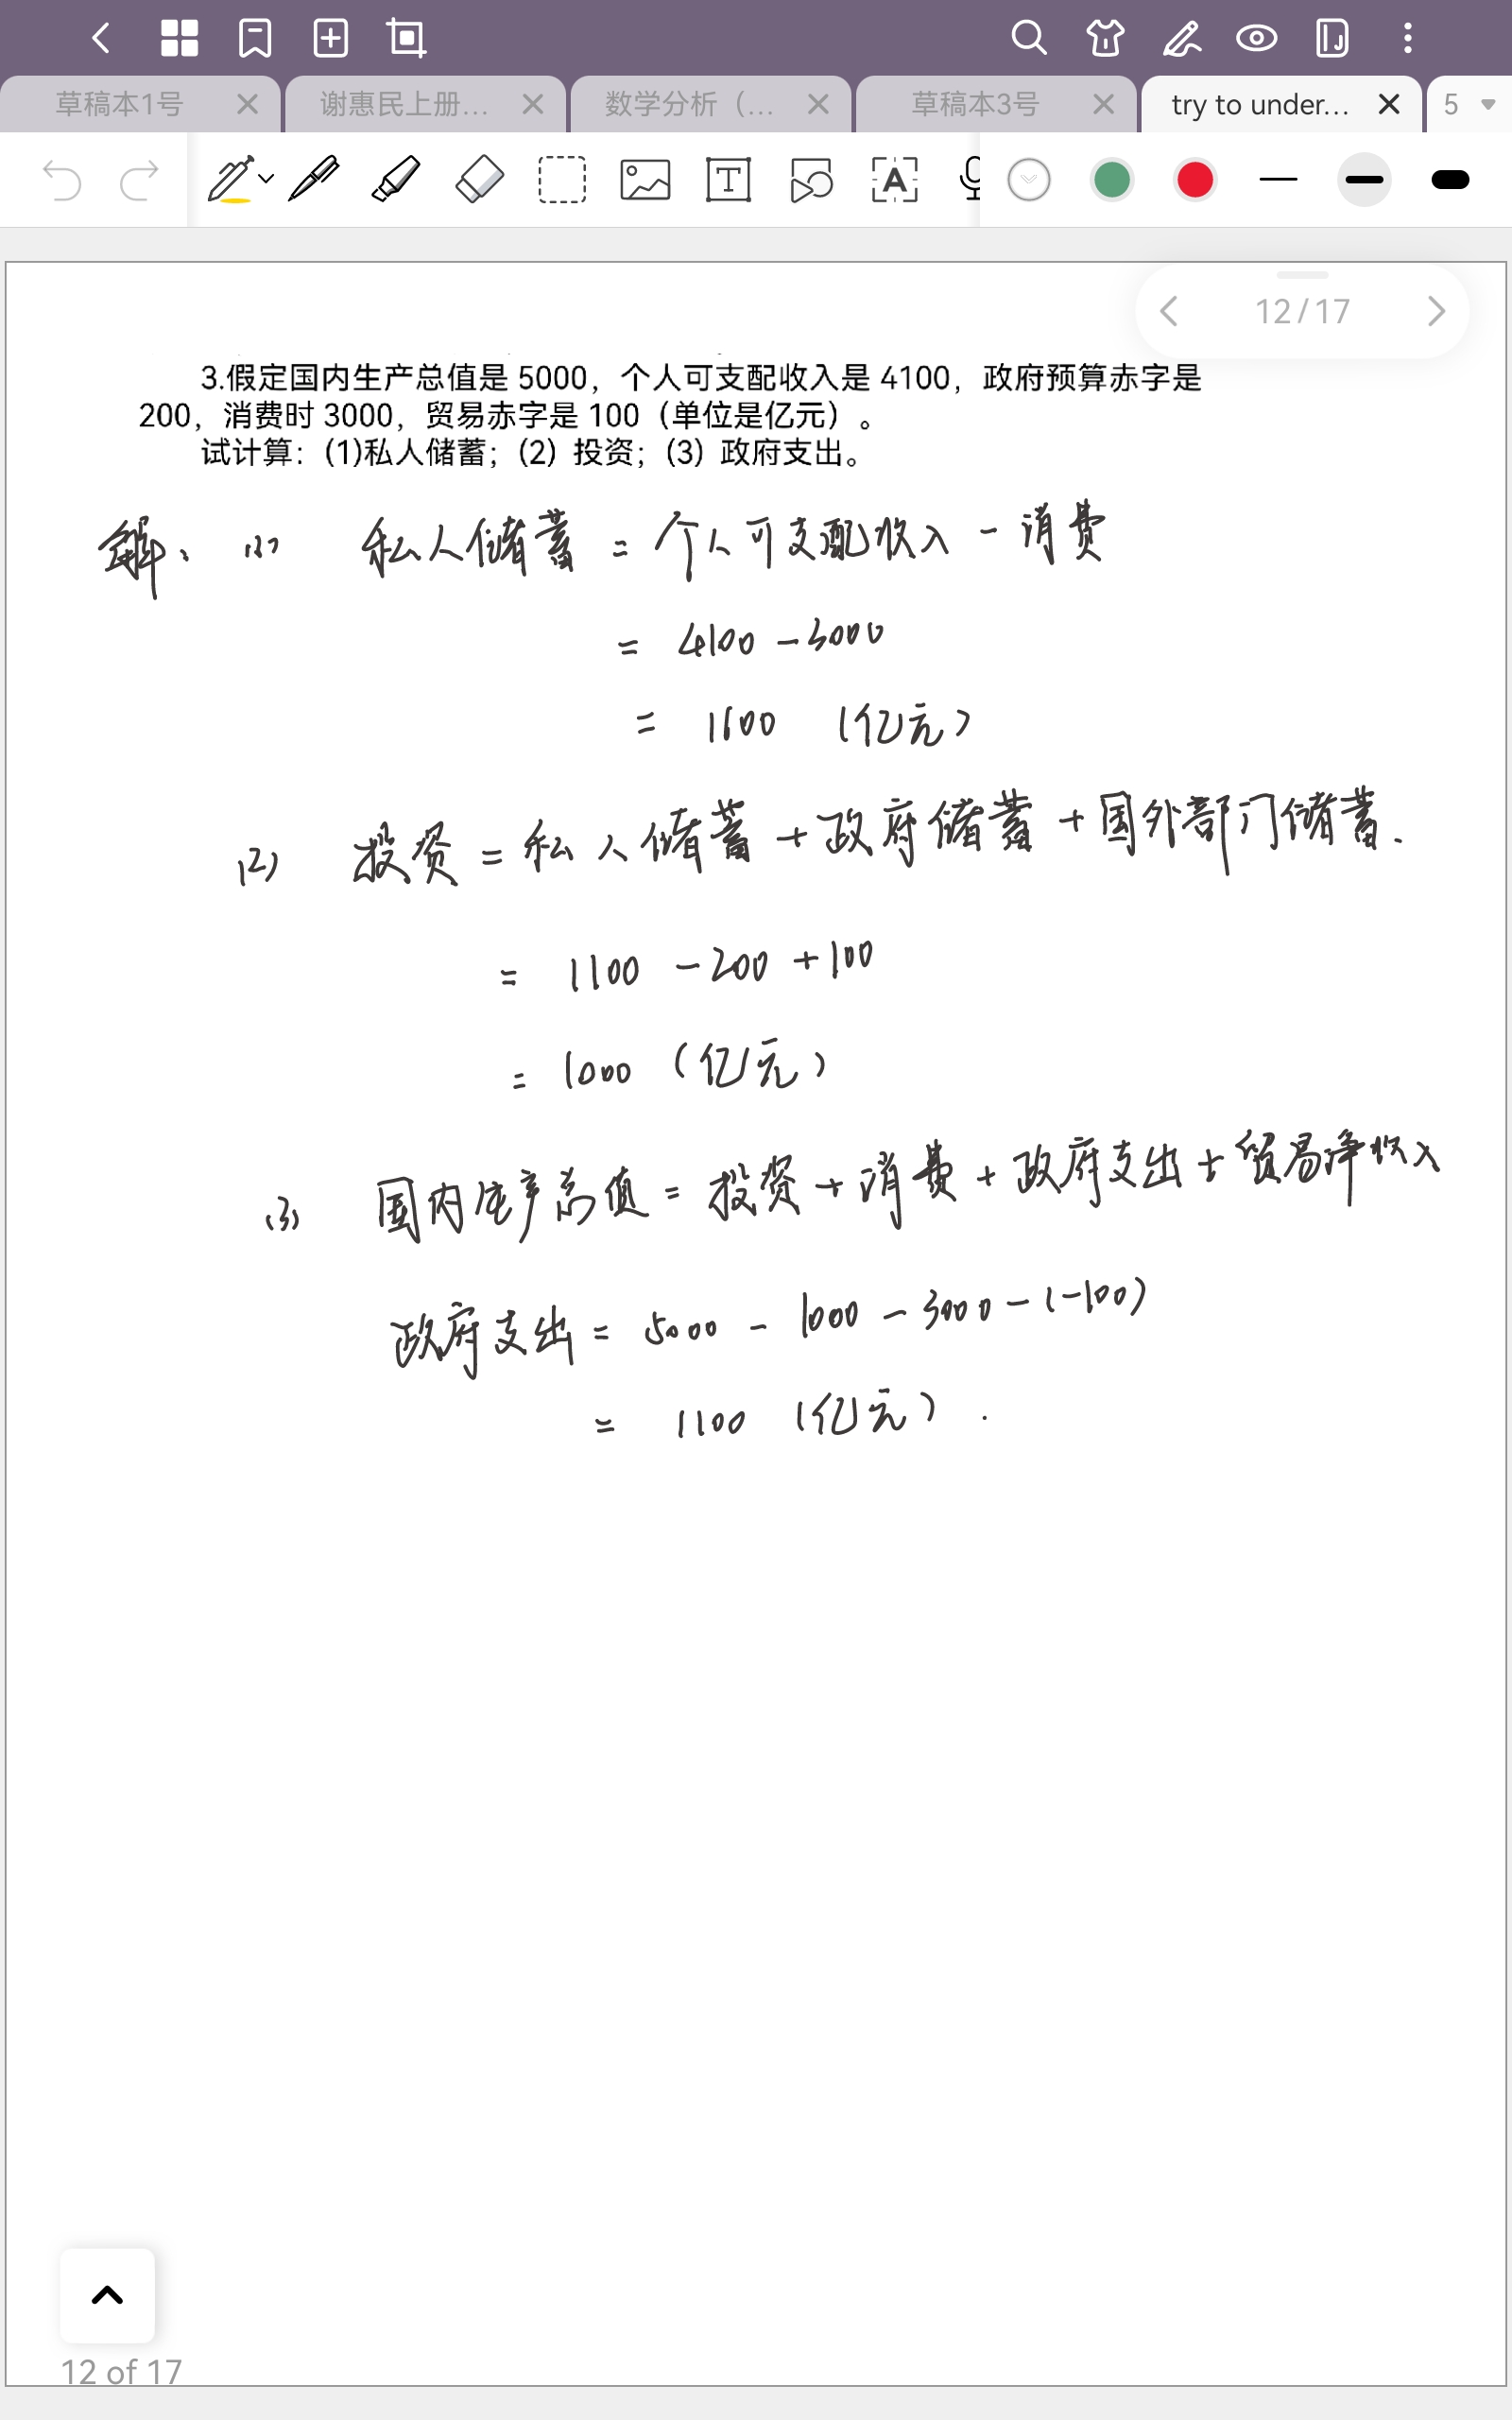 草稿本1号
谢惠民上册...
数学分析（...
草稿本3号
try to under...
5
12/17
3.假定国内生产总值是 5000，个人可支配收入是 4100，政府预算赤字是
200，消费时 3000，贸易赤字是 100（单位是亿元）。
试计算：(1)私人储蓄；(2) 投资；(3) 政府支出。
解、(1) 私人储蓄 = 个人可支配收入 - 消费
= 4100 - 3000
= 1100 (亿元)
(2) 投资 = 私人储蓄 + 政府储蓄 + 国外部门储蓄.
= 1100 - 200 + 100
= 1000 (亿元)
(3) 国内生产总值 = 投资 + 消费 + 政府支出 + 贸易净收入
政府支出 = 5000 - 1000 - 3000 - (-100)
= 1100 (亿元) .
12 of 17